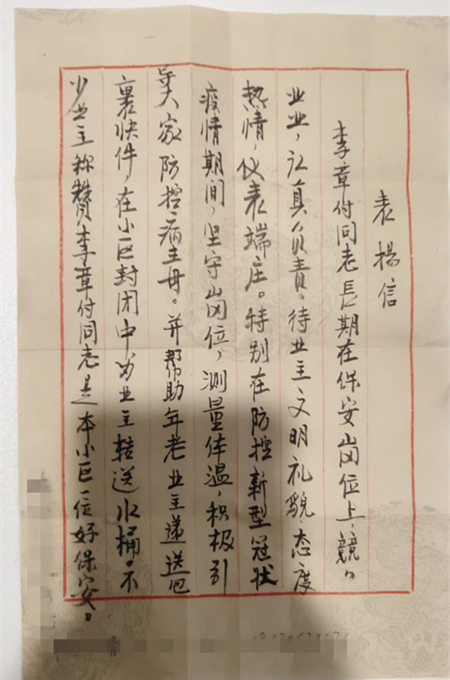 表揚信
李章付同志長期在保安岗位上，競々
业业，认真负责。待业主文明礼貌、态度
热情，仪表端庄。特别在防控新型冠状
疫情期间，坚守岗位，测量体温，积极引
导大家防控病毒。并帮助年老业主递送包
裹快件在小区封闭中为业主转送水桶。不
少业主称赞李章付同志是本小区一位好保安。